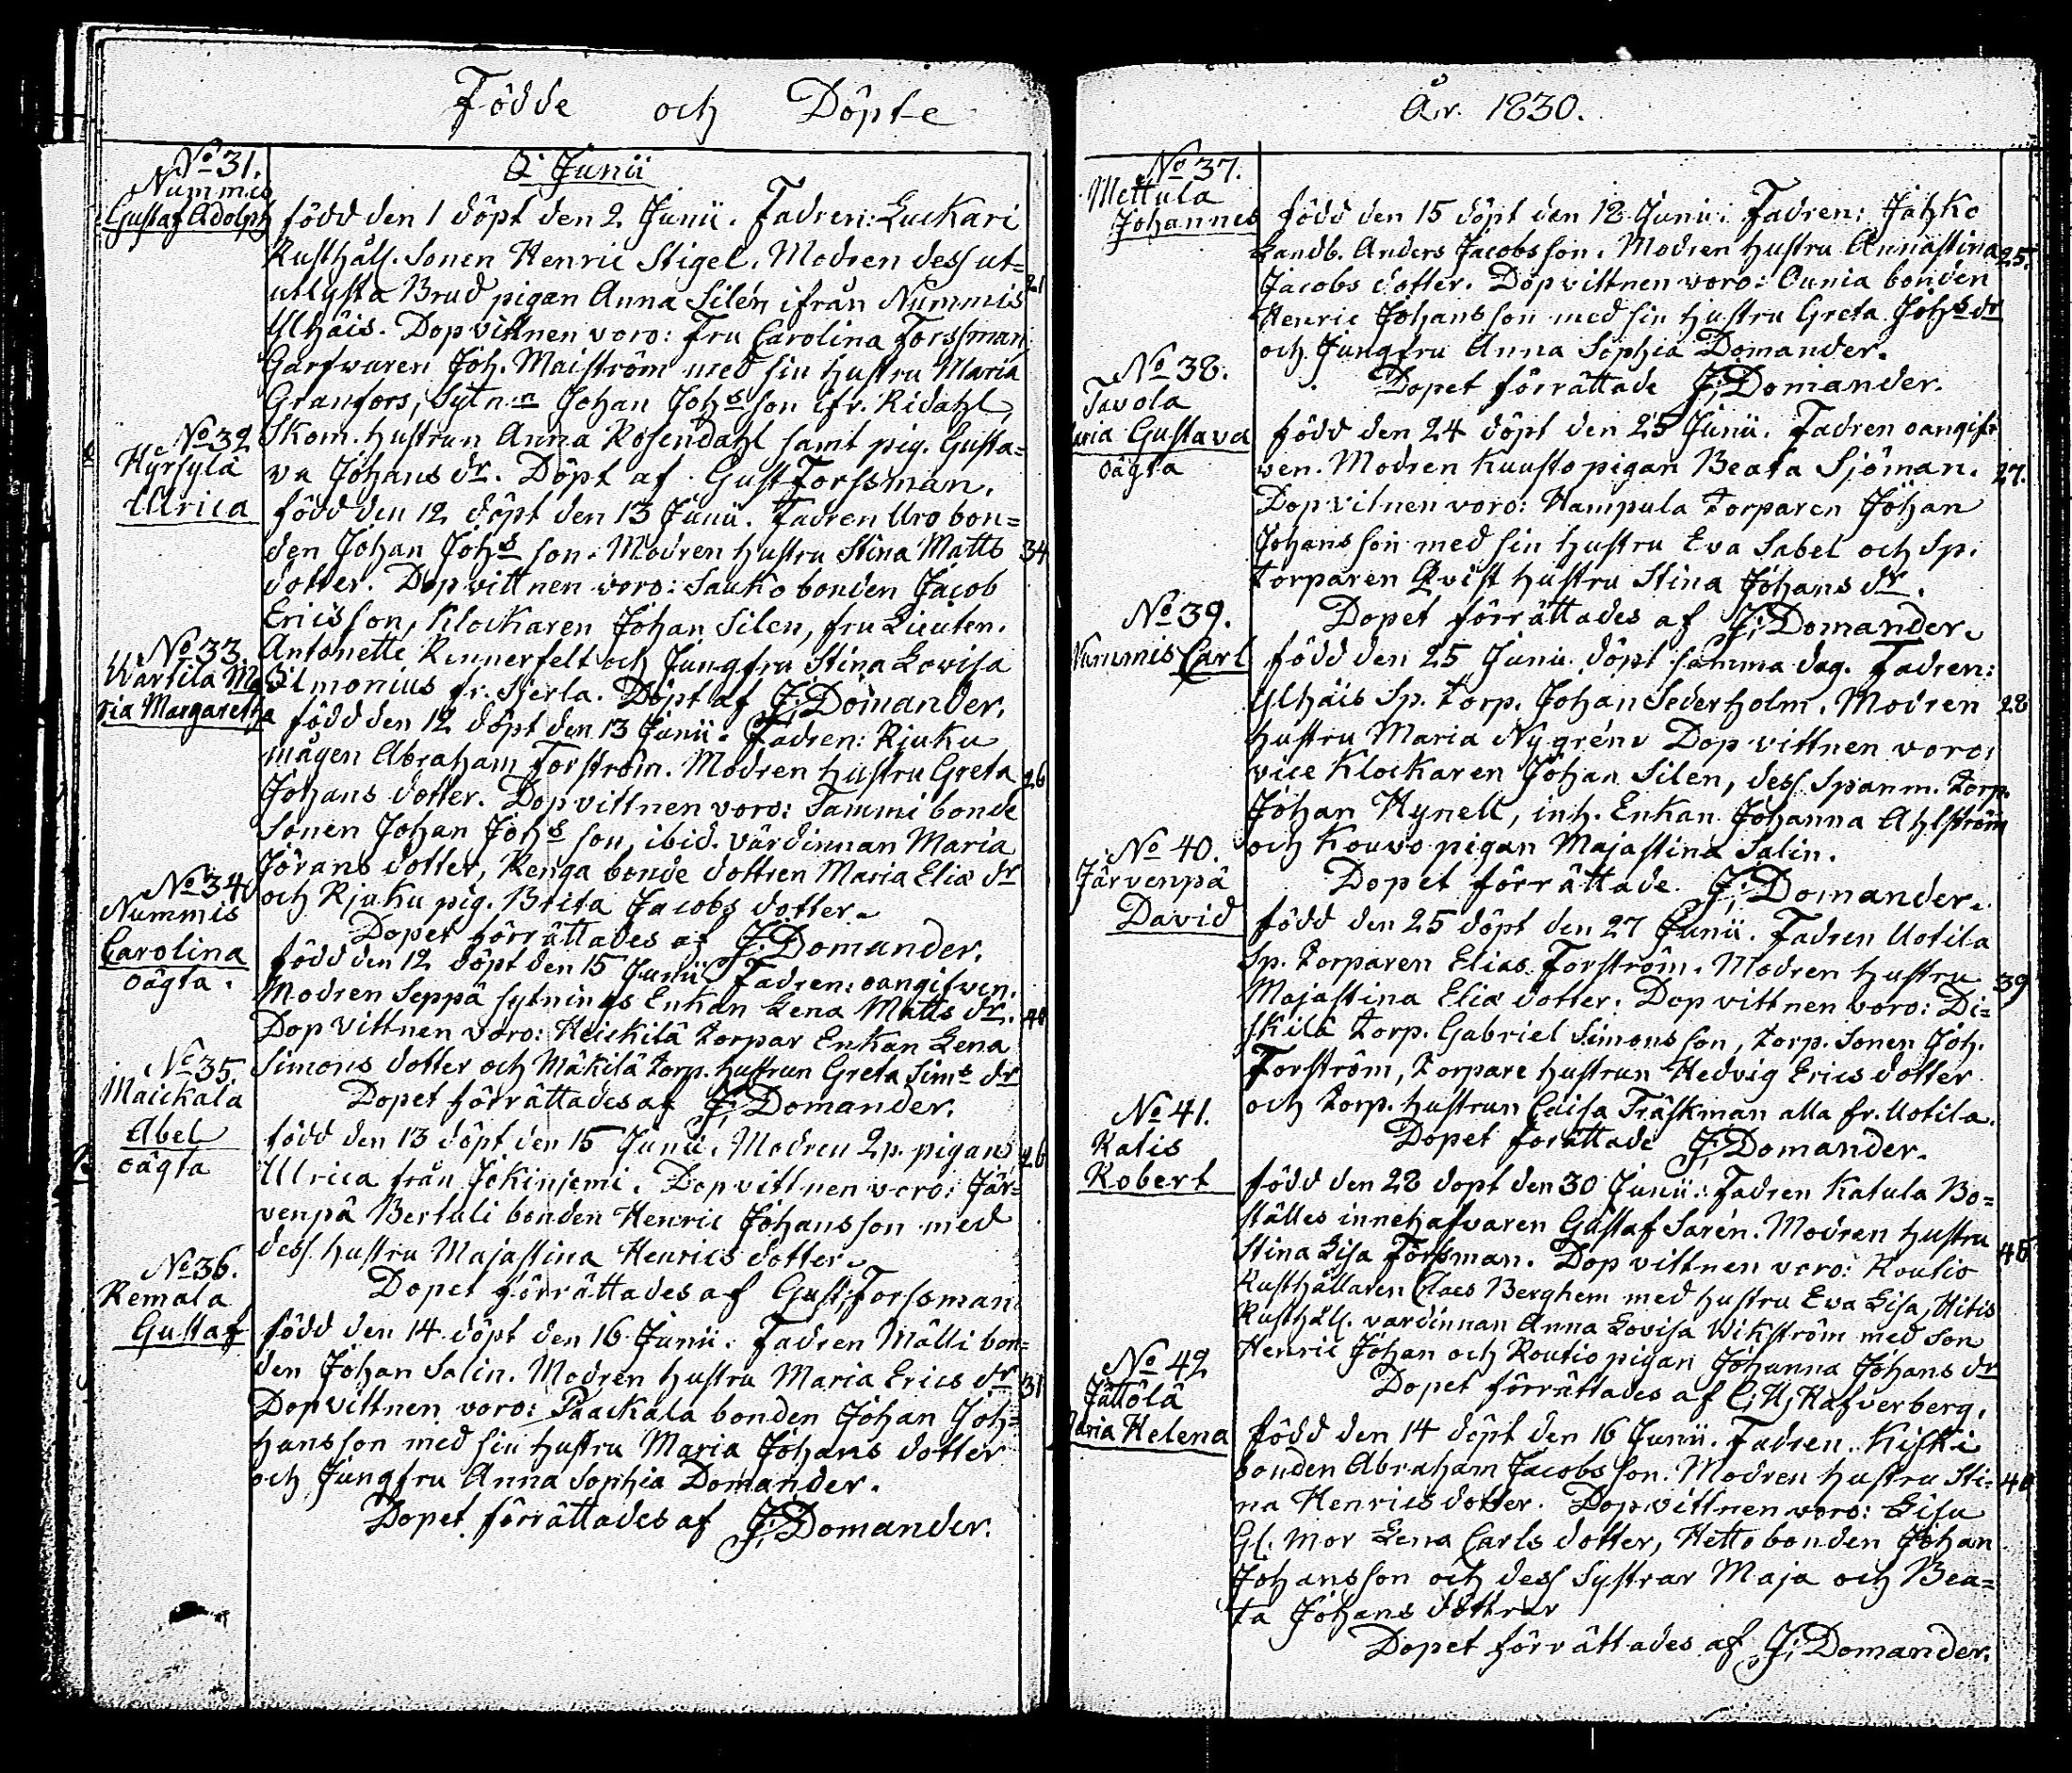 Födde och Döpte
No 31.
Nummis
Gustaf Adolph
Junii
född den 1 döpt den 2 Junii. Fadren: Luckari
Rusthåll. Sonen Henric Stigel. Modren dess ut=
utlysta Brud pigan Anna Silén ifrån Nummis 21
Ylhäis. Dopvittnen voro: Fru Carolina Forssman,
Garfvaren Joh. Maiström med sin hustru Maria
Granfors, Sytn:n Johan Johs son ifr. Ridahl,
Skom. hustrun Anna Rosendahl samt pig. Gusta=
va Johans dr. Döpt af Gust Forssman.
No 32
Hyrsylä
Ulrica
född den 12 döpt den 13 Junii. Fadren Uro bon=
den Johan Johs son. Modren hustru Stina Matts 34
dotter. Dopvittnen voro: Sauko bonden Jacob
Ericsson, Klockaren Johan Silen, fru Lieuten.
Antonette Rennerfelt och Jungfru Stina Lovisa
Ilmonius fr. Sjerla. Döpt af J; Domander.
No 33
Wartila Ma
ria Margaretha
född den 12 döpt den 13 Junii. Fadren: Rjuku
mågen Abraham Forström. Modren hustru Greta 26
Johans dotter. Dopvittnen voro: Tammi bonde
Sonen Johan Johs son, ibid. värdinnan Maria
Jörans dotter, Renga bonde dottren Maria Elia dr
och Rjuku pig. Brita Jacobs dotter.
Dopet förrättades af J; Domander.
No 34
Nummis
Carolina
oägta.
född den 12 döpt den 15 Junii. Fadren: oangifven.
Modren Seppä sytnings Enkan Lena Matts dr. 40
Dopvittnen voro: Heickilä torpar Enkan Lena
Simons dotter och Mäkilä torp. hustrun Greta Sims dr
Dopet förrättades af J; Domander.
No 35
Maickala
Abel
oägta
född den 13 döpt den 15 Junii. Modren Lp. pigan 26
Ulrica från Jokinjemi. Dopvittnen voro: Jär=
venpä Bertuli bonden Henric Johansson med
dess hustru Majastina Henrics dotter.
Dopet förrättades af Gust; Forssman
No 36.
Remala
Gustaf
född den 14 döpt den 16 Junii. Fadren Mälli bon=
den Johan Salin. Modren hustru Maria Erics dr 31
Dopvittnen voro: Paackala bonden Johan Joh=
hansson med sin hustru Maria Johans dotter
och Jungfru Anna Sophia Domander.
Dopet förrättades af J; Domander.
År 1830.
No 37.
Mettula
Johannes
född den 15 döpt den 18 Junii. Fadren: Jahko
Landb. Anders Jacobsson. Modren hustru Annastina 25.
Jacobs dotter. Dopvittnen voro: Ounia bonden
Henric Johansson med sin hustru Greta Johs dr
och Jungfru Anna Sophia Domander.
Dopet förrättade J; Domander.
No 38.
Tavola
Maria Gustava
oägta
född den 24 döpt den 25 Junii. Fadren oangif=
ven. Modren Kuusto pigan Beata Sjöman. 27.
Dopvitnen voro: Hampula torparen Johan
Johansson med sin hustru Eva Sabel och Sp.
torparen Qvist hustru Stina Johans dr.
Dopet förrättades af J; Domander.
No 39.
Nummis Carl
född den 25 Junii döpt samma dag. Fadren:
Ylhäis Sp. torp. Johan Sederholm. Modren 28
hustru Maria Nygrén. Dopvittnen voro:
vice Klockaren Johan Silen, dess Spanm. torp.
Johan Hynell, inh. Enkan Johanna Ahlström
och Kouvo pigan Majastina Salin.
Dopet förrättade J; Domander.
No 40.
Järvenpä
David
född den 25 döpt den 27 Junii. Fadren Uotila
Sp. torparen Elias Forström. Modren hustru 39
Majastina Elia dotter. Dopvittnen voro: Di=
skilä torp. Gabriel Simonsson, torp. Sonen Joh.
Forström, torpare hustrun Hedvig Erics dotter
och torp. hustrun Caisa Träskman alla fr. Uotila.
Dopet forättade J; Domander.
No 41.
Katis
Robert
född den 28 dopt den 30 Junii. Fadren Katula Bo=
ställes innehafvaren Gustaf Sarén. Modren hustru
Stina Lisa Forssman. Dopvittnen voro: Routio 45
Rusthållaren Claes Berghem med hustru Eva Lisa, Hitis
Rusthåll. vardinnan Anna Lovisa Wikström med son
Henric Johan och Routio pigan Johanna Johans dr
Dopet förrättades af C; H; Hafverberg.
No 42
Jättölä
Maria Helena
född den 14 döpt den 16 Junii. Fadren. Kiski
bonden Abraham Jacobsson. Modren hustru Sti= 40
na Henrics dotter. Dopvittnen voro: Lisu
Gl. mor Lena Carls dotter, Hetto bonden Johan
Johansson och dess Systrar Maja och Bea=
ta Johans döttrar
Dopet förrättades af J; Domander.